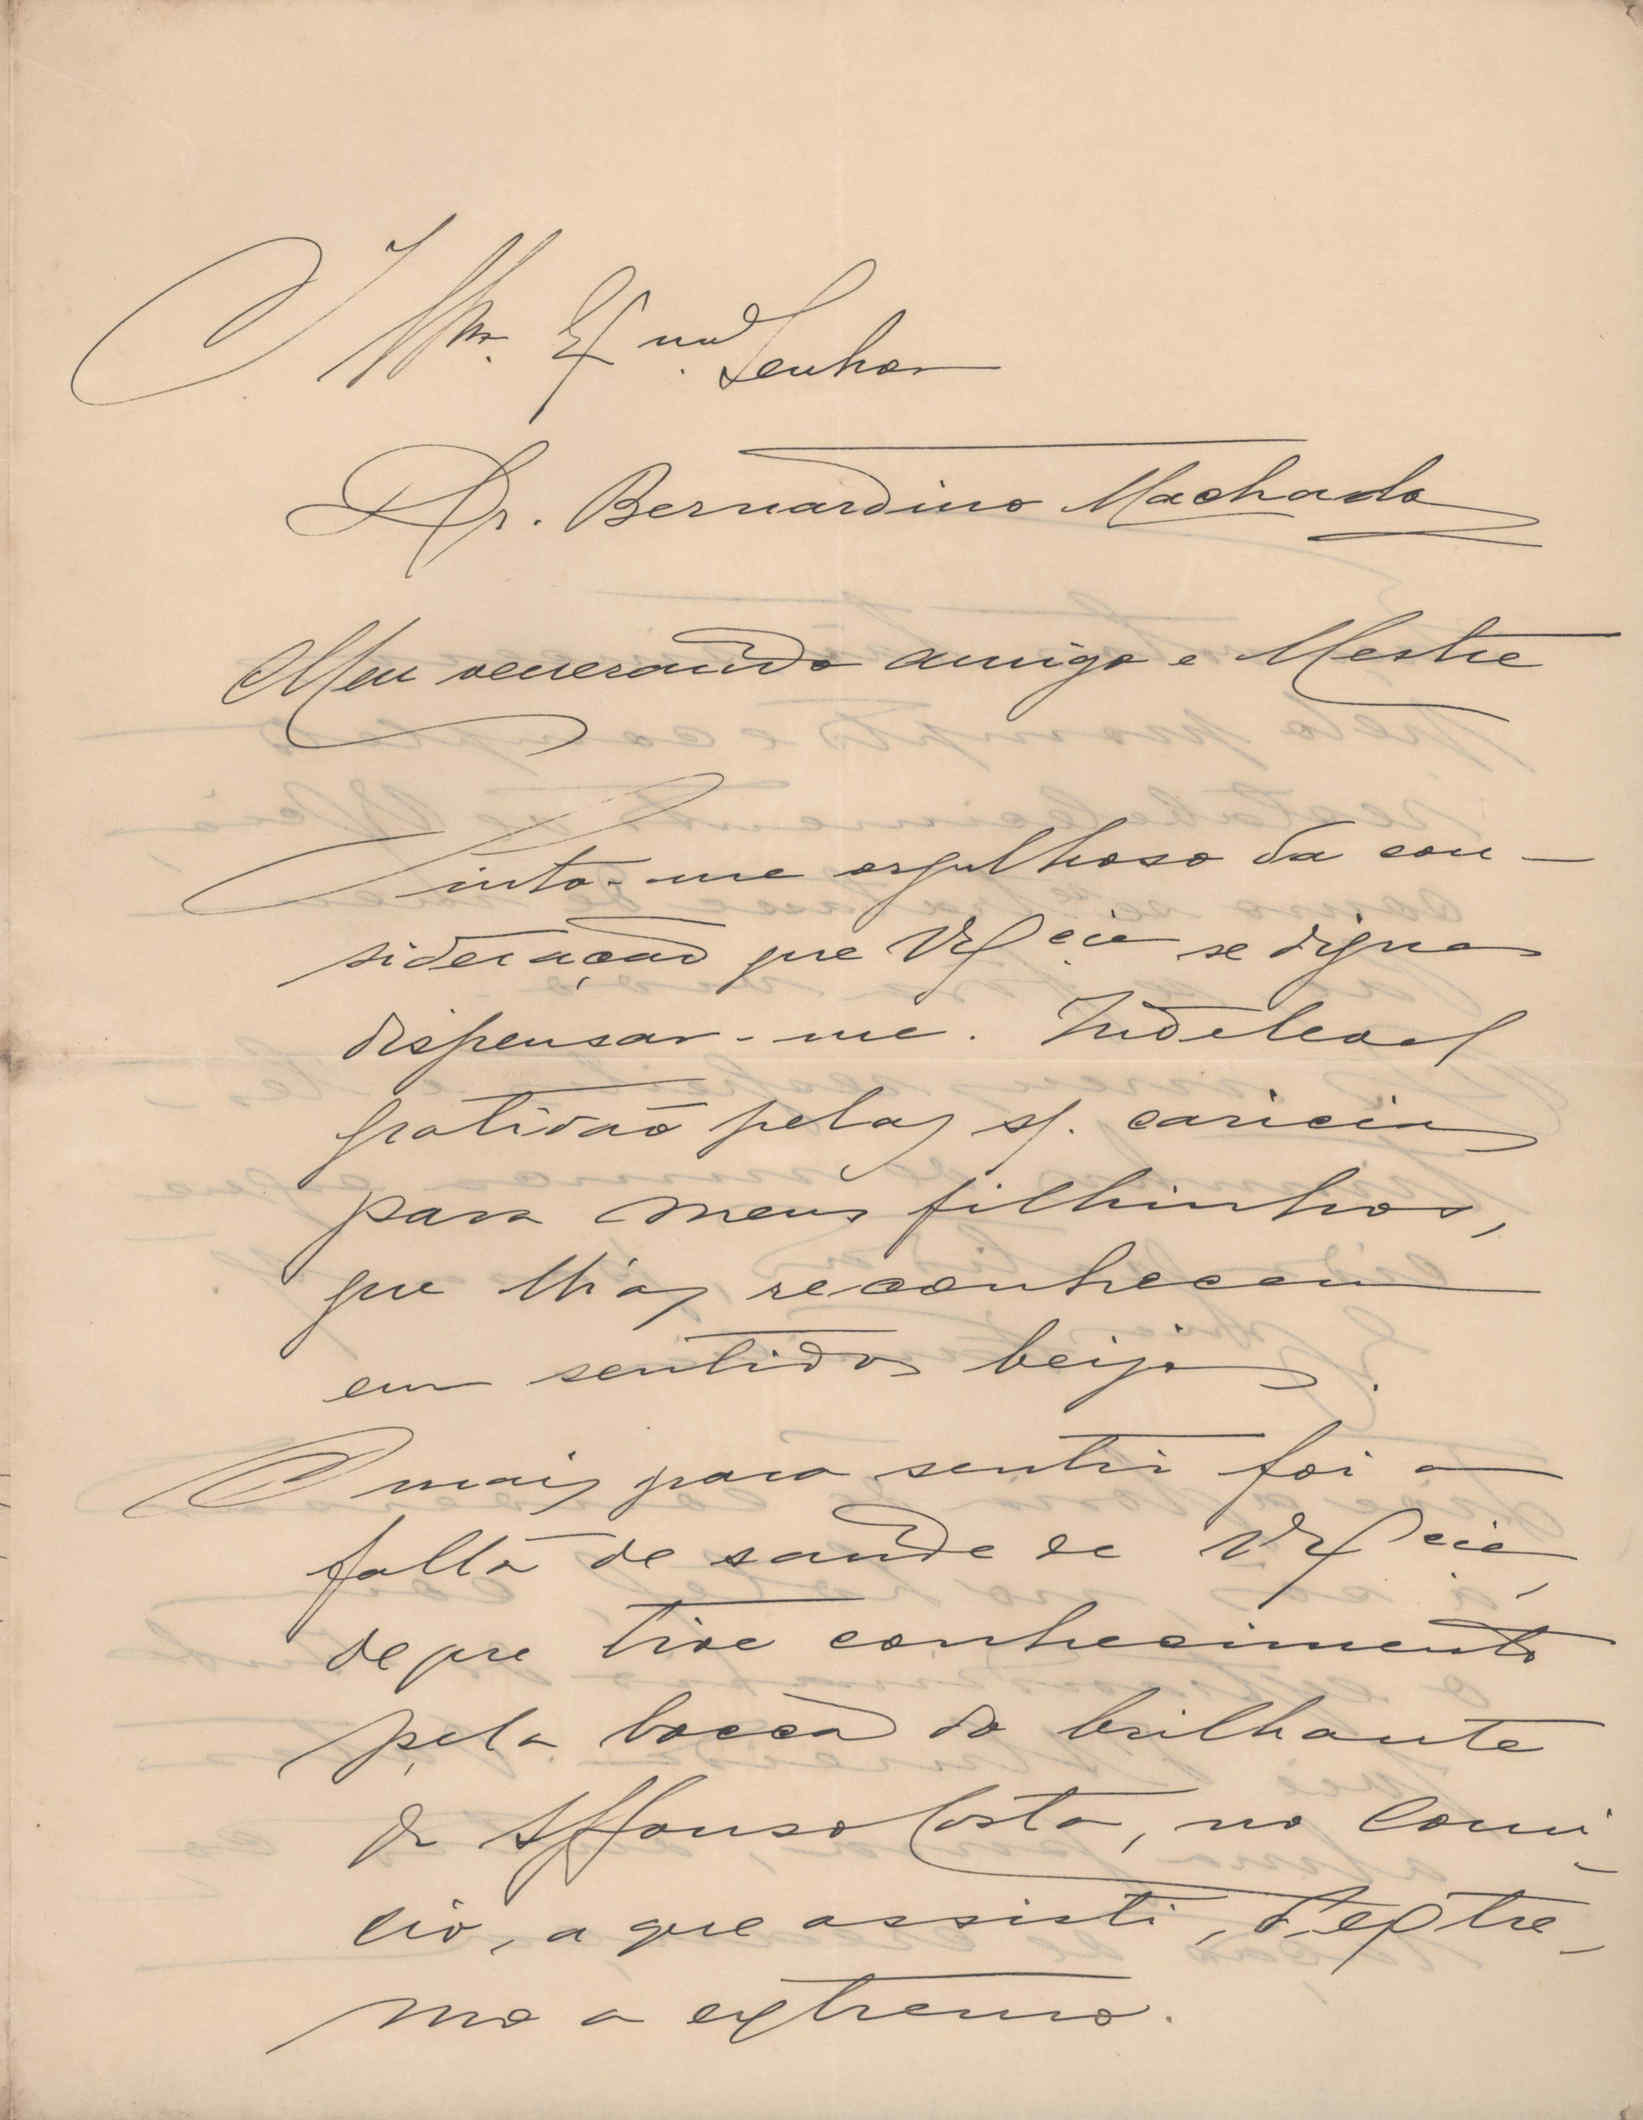 Illmo. Exmo. Senhor
Dr. Bernardino Machado
Meu venerando amigo e Mestre
Sinto-me orgulhoso da con-
sideração que V. Excia se digna
dispensar-me. Indelevel
gratidão pelas s/. caricias
para meus filhinhos,
que lh'as reconhecem
em sentidos beijos.
O mais para sentir foi a
falta de saude de V. Excia,
de que tive conhecimento
pela bocca do brilhante
dr Affonso Costa, no comi-
cio, a que assisti, d'extre-
mo a extremo.